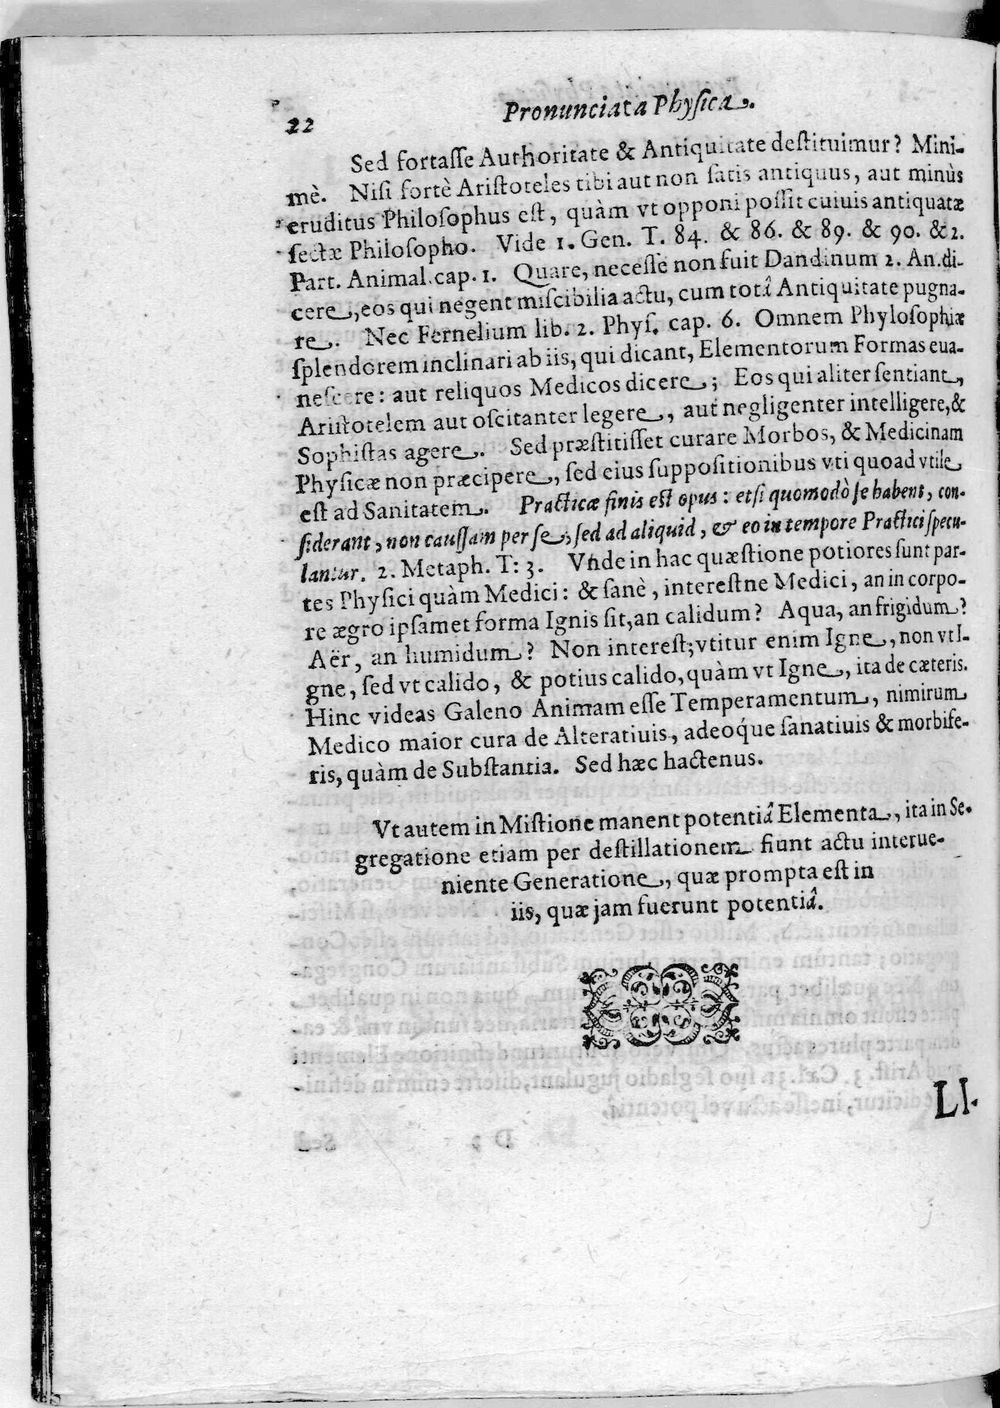 22
Pronunciata Physica.
Sed fortasse Authoritate & Antiquitate destituimur? Mini-
mè. Nisi fortè Aristoteles tibi aut non satis antiquus, aut minùs
eruditus Philosophus est, quàm vt opponi possit cuiuis antiquatæ
sectæ Philosopho. Vide 1. Gen. T. 84. & 86. & 89. & 90. & 2.
Part. Animal. cap. 1. Quare, necesse non fuit Dandinum 2. An. di-
cere, eos qui negent miscibilia actu, cum totâ Antiquitate pugna-
re. Nec Fernelium lib. 2. Phys. cap. 6. Omnem Phylosophiæ
splendorem inclinari ab iis, qui dicant, Elementorum Formas eua-
nescere: aut reliquos Medicos dicere; Eos qui aliter sentiant,
Aristotelem aut oscitanter legere, aut negligenter intelligere, &
Sophistas agere. Sed præstitisset curare Morbos, & Medicinam
Physicæ non præcipere, sed eius suppositionibus vti quoad vtile
est ad Sanitatem. Practicæ finis est opus: etsi quomodò se habent, con-
siderant, non caussam per se, sed ad aliquid, & eo in tempore Practici specu-
lantur. 2. Metaph. T: 3. Vnde in hac quæstione potiores sunt par-
tes Physici quàm Medici: & sanè, interestne Medici, an in corpo-
re ægro ipsamet forma Ignis sit, an calidum? Aqua, an frigidum?
Aër, an humidum? Non interest; vtitur enim Igne, non vt I-
gne, sed vt calido, & potius calido, quàm vt Igne, ita de cæteris.
Hinc videas Galeno Animam esse Temperamentum, nimirum
Medico maior cura de Alteratiuis, adeoque sanatiuis & morbife-
ris, quàm de Substantia. Sed hæc hactenus.
Vt autem in Mistione manent potentiâ Elementa, ita in Se-
gregatione etiam per destillationem fiunt actu interue-
niente Generatione, quæ prompta est in
iis, quæ jam fuerunt potentiâ.
LI.